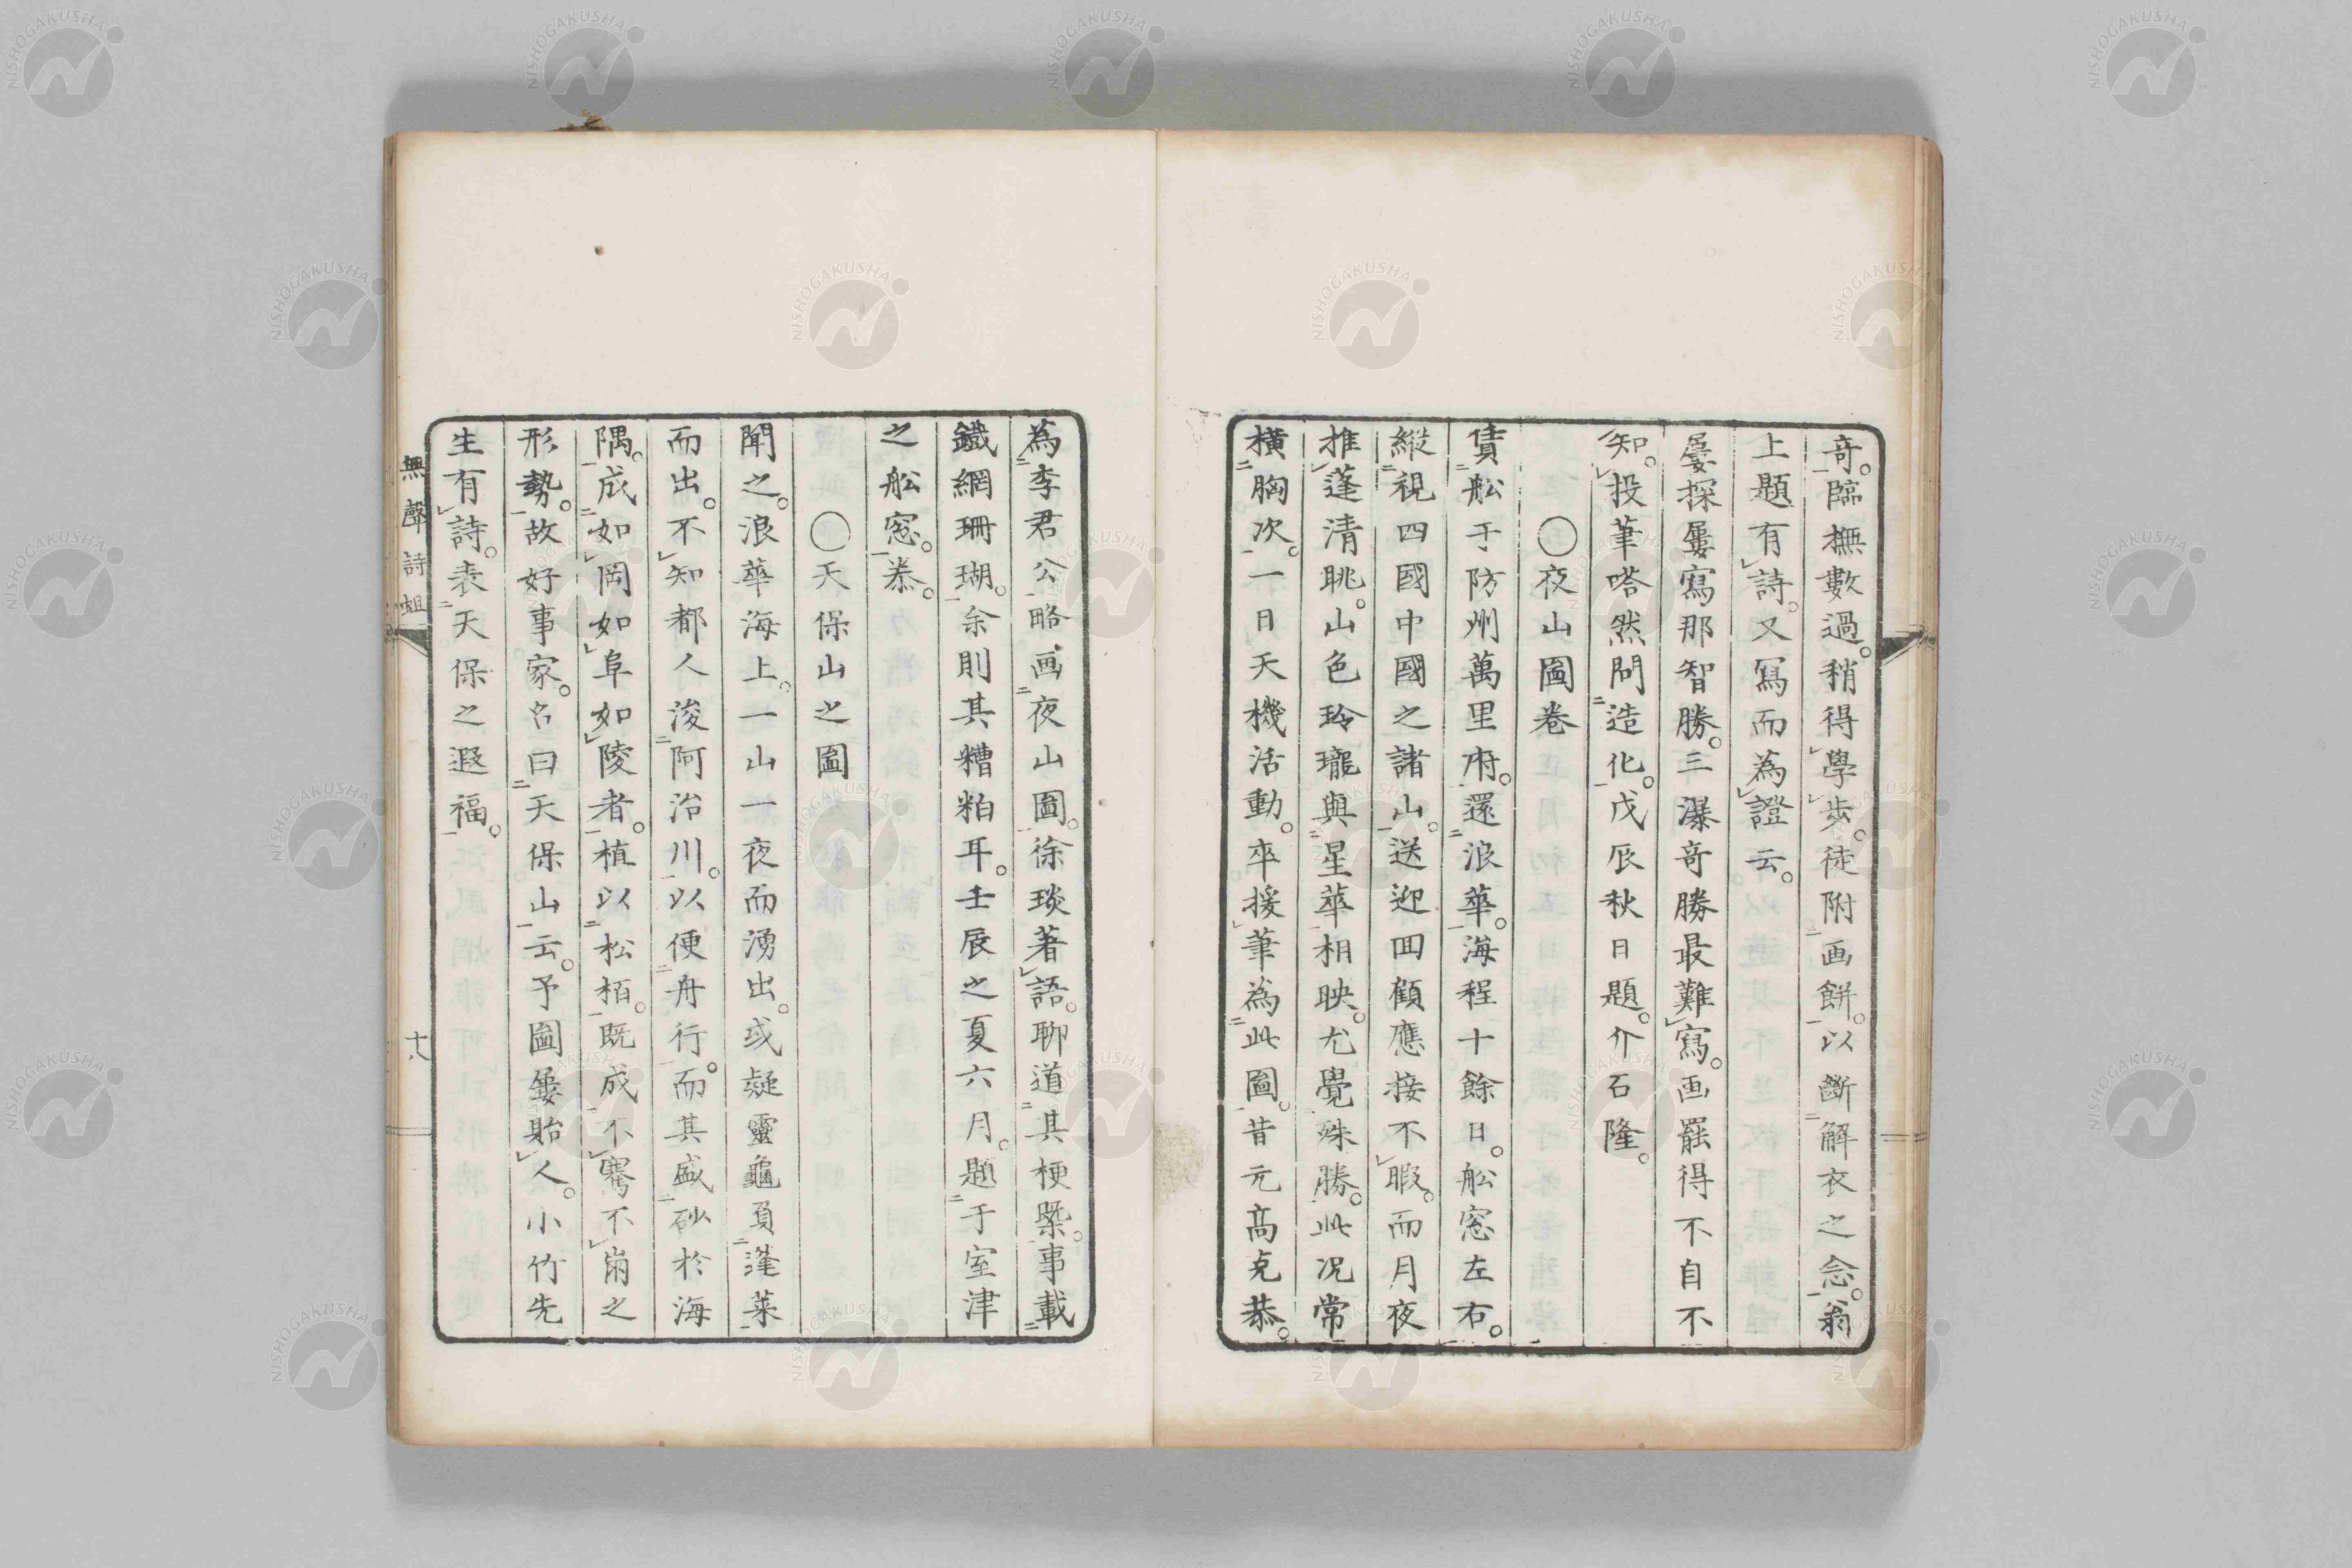 奇。臨撫數過。稍得學步。徒附画餅。以斷解衣之念。翁
上題有詩。又寫而為證云。
屢探屢寫那智勝。三瀑奇勝最難寫。画罷得不自不
知。投筆嗒然問造化。戊辰秋日題。介石隆。
○夜山圖卷
賃舩于防州萬里府。還浪華。海程十餘日。舩窓左右。
縱視四國中國之諸山。送迎回顧應接不暇。而月夜
推蓬清眺。山色玲瓏與星華相映。尤覺殊勝。此况常
橫胸次。一日天機活動。卒援筆為此圖。昔元高克恭。
為李君公略画夜山圖。徐琰著語。聊道其梗槩。事載
鐵網珊瑚。余則其糟粕耳。壬辰之夏六月。題于室津
之舩窓。桊。
○天保山之圖
聞之。浪華海上。一山一夜而湧出。或疑靈龜負蓬萊
而出。不知都人浚阿治川。以便舟行。而其盛砂於海
隅。成如岡如阜如陵者。植以松栢。既成不騫不崩之
形勢。故好事家。名曰天保山云。予圖屢貽人。小竹先
生有詩。表天保之遐福。
無聲詩
十八
NISHOGAKUSHA